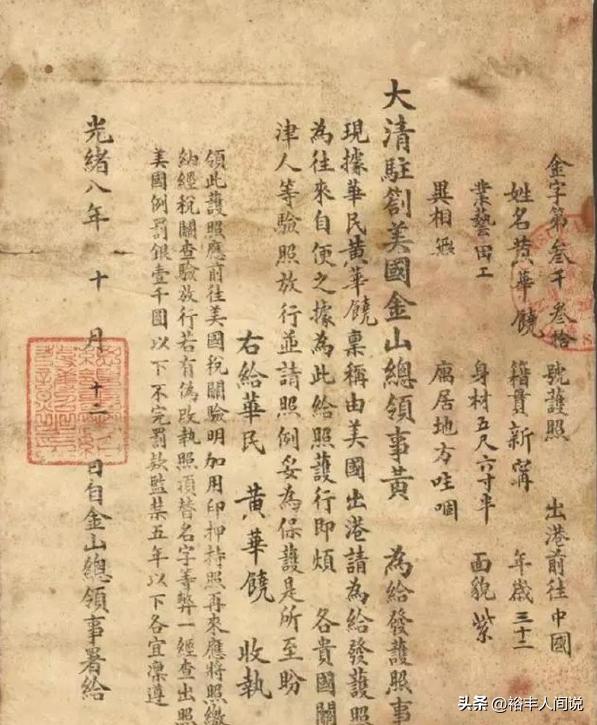 金字第叁千叁拾 號護照 出港前往中國
姓名黄華饒 籍貫新寧 年歲三十二
業藝田工 身材五尺六寸半 面貌紫
異相無 寓居地方哇啁
大清駐劄美國金山總領事黃 為給發護照事
現據華民黄華饒稟稱由美國出港請為給發護照
為往來自便之據為此給照護行即煩 各貴國關
津人等驗照放行並請照例妥為保護是所至盼
右給華民 黄華饒 收執
領此護照應前往美國稅關驗明加用印押持照再來應將照繳
納經稅關查驗放行若有偽改執照頂替名字等弊一經查出照
美國例罰銀壹千圓以下不完罰款監禁五年以下各宜凜遵
光緒八年 十 月 十二 日自金山總領事署給
头条 @裕丰人间说